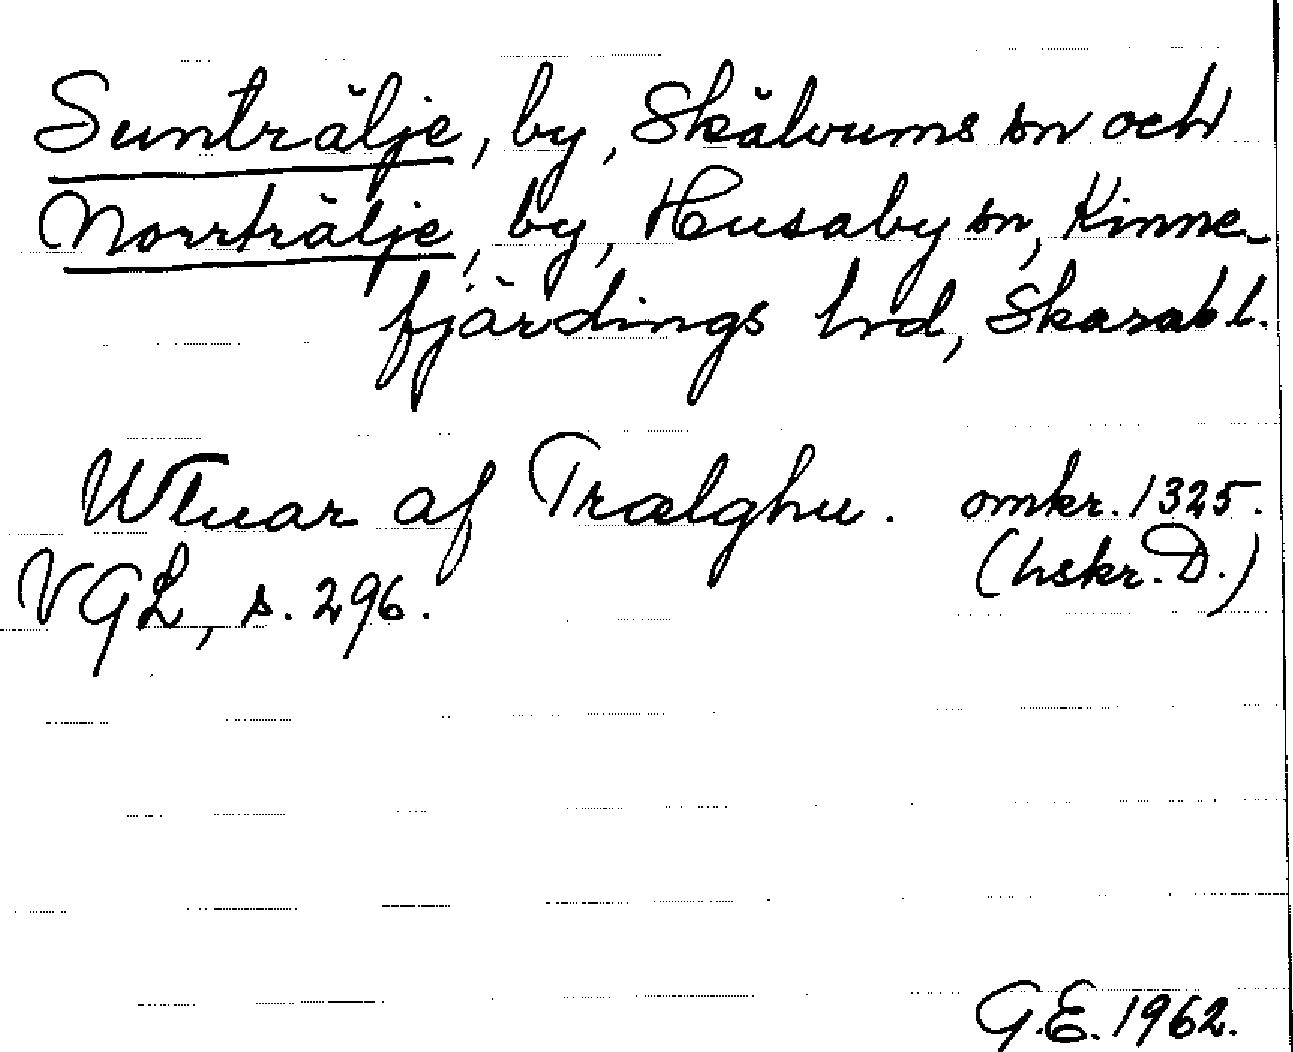 Sunträlje, by, Skälvums sn och
Norrträlje, by, Husaby sn, Kinne-
fjärdings hrd, Skarab l.
Utuar af Trælghu. omkr. 1325.
(hskr. D.)
VGL, s. 296.
G.E. 1962.